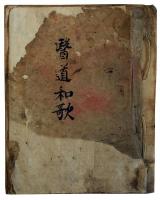 醫道和歌